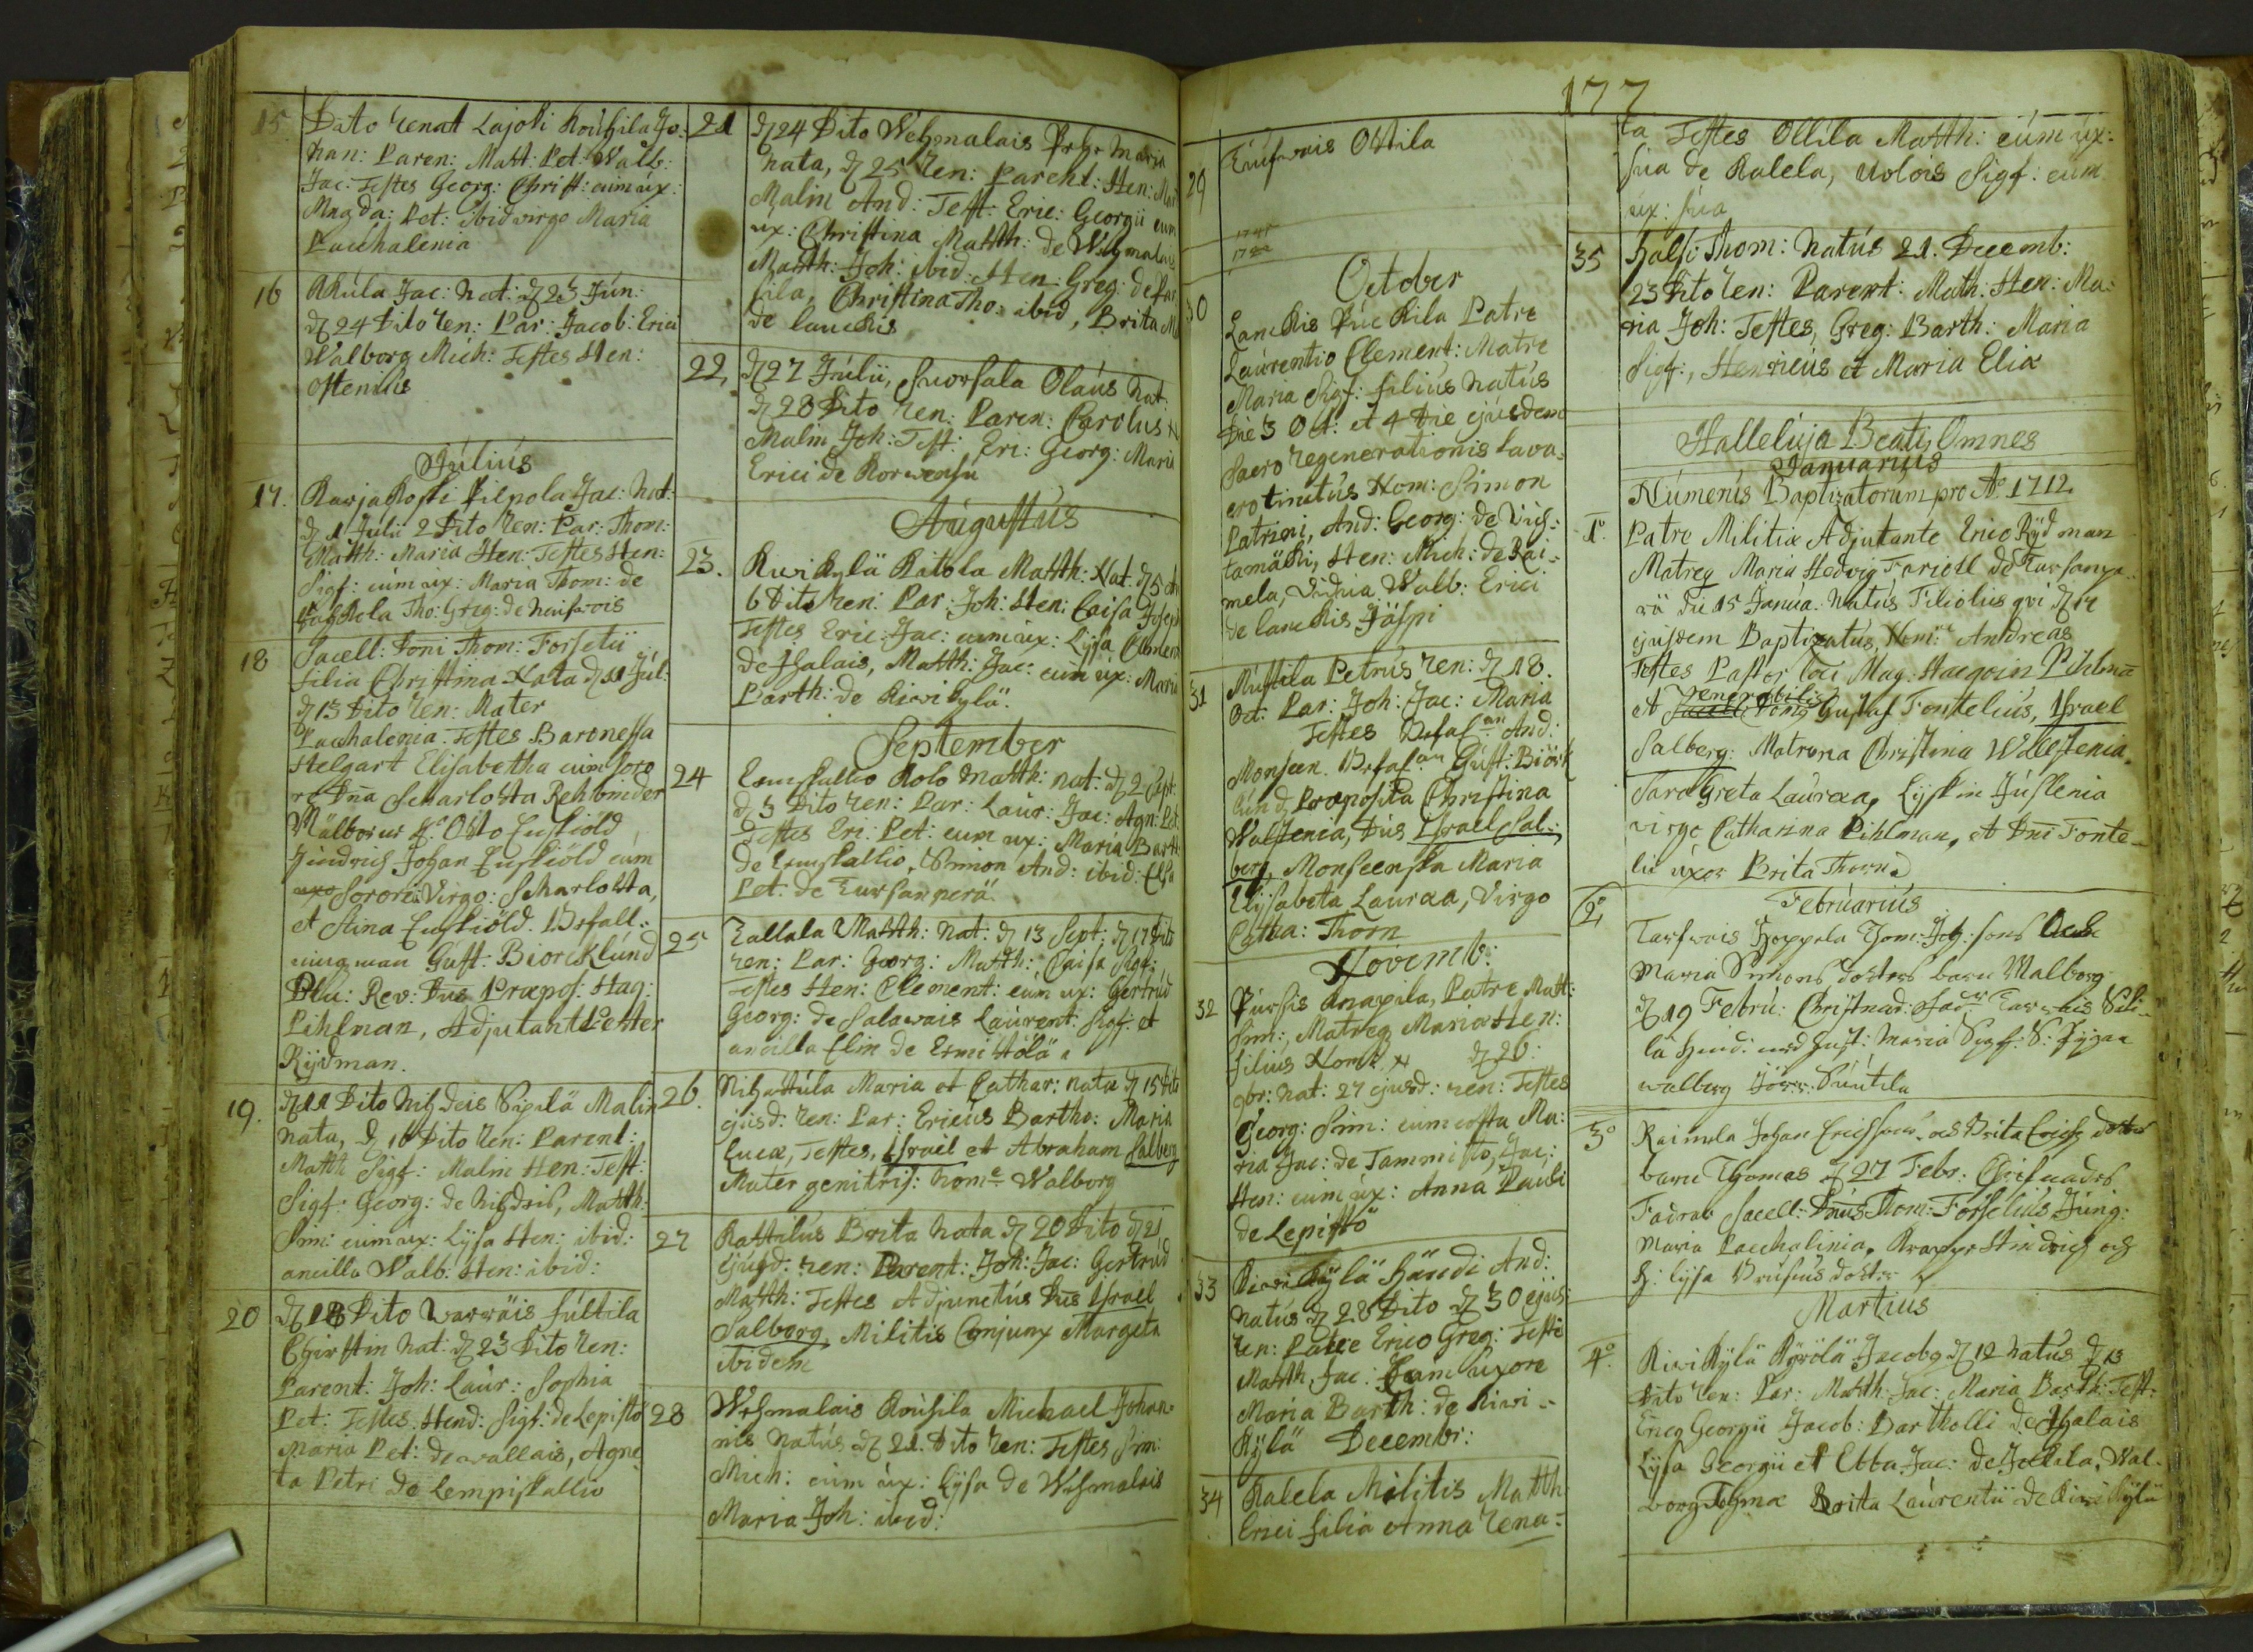 15 Dito renat Lajoki Kouhila Jo-
han: Paren: Matt: Pet: Walb:
Jac: Testes Georg: Christ: cum ux:
Magda: Pet: ibid virgo Maria
Pacchalenia
16 Akula Jac: Nat: d 23 Jun:
d 24 Dito ren: Par: Jacob: Erici
Walborg Mich: Testes Hen:
Ostensis
Julius
17. Karjakoski Pilpola Jac: Nat:
d 1 Julii 2 Dito ren: Par: Thom:
Matth: Maria Hen: Testes Hen:
Sigf: cum ux: Maria Thom: de
Tho: Greg: de
18 Sacell: Domi Thom: Forselii
filia Christina Nata d 11 Jul:
d 13 Dito ren: Mater
Pacchalenia. Testes Baronessa
Helgart Elisabetha cum soro
re Dna Scharlotta Rehbinder
Otto
Hindrich Johan cum
Sorori: Virgo: Scharlotta,
et Stina Befall:
ningman Gust: Biorcklund
Plu: Rev: Dns Præpos: Hag:
Pihlman, Adjutant
Rydman.
19. d 11 Dito Nihdeis Sipilä Malin
nata, d 16 Dito ren: Parent:
Matth Sigf: Malin Hen: Test:
Sigf: Georg: de Matth:
Sim: cum ux: Lysa Hen: ibid:
ancilla Walb: Hen: ibid:
20 d 18 Dito Warwäis Sultila
Christin Nat. d 23 Dito ren:
Parent: Joh: Laur: Sophia
Pet: Testes Hend: Sigf: de Lepistö
Maria Pet: de wallais, Agne
ta Petri de Lempiskallio
21 d 24 Dito Wehmalais Maria
nata, d 25 ren: Parent: Hen: Mar
Malin And: Test: Eric: Georgii cum
ux: Christina Matth: de Wehmalais
Matth: Joh: ibid: Hen: Greg: de
sila, Christina Tho: ibid, Brita
de lanckis
22, d 27 Julii, Suorsala Olaus Nat:
d 28 Dito ren: Paren: Carolus
Malin Joh: Test: Eri: Georg: Maria
Erici de Korwensu
Augustus
23. Kiwikylä Ritola Matth: Nat: d 5
6 Dito ren: Par: Joh: Hen: Caisa Joseph
Testes Eric: Jac: cum ux: Lysa Clement
de Ihalais, Matth: Jac: cum ux: Maria
Barth: de Kiwikylä.
September
24 Lemskallio Kolo Matth: Nat: d 2 Sept:
d 3 Dito ren: Par: Laur: Jac: Agn: Pet:
Testes Eri: Pet: cum ux: Maria Barth:
de Lemskallio, Simon And: ibid: Elsa
Pet: de Tursanperä.
25 Tallala Matth: Nat: d 13 Sept: d 17 Dito
ren: Par: Georg: Matth: Caisa Sigf:
Testes Hen: Clement: cum ux: Gertrud
Georg: de Salawais Laurent: Sigf: et
ancilla Elin de
26. Nihattula Maria et Cathar: nata d 15 Dito
ejusd: ren: Par: Ericus Bartho: Maria
Lucæ, Testes, Israel et Abraham Salberg
Mater genitris: Nom:e Walborg
27 Kattilus Brita Nata d 20 Dito d 21
ejusd: ren: Parent: Joh: Jac: Gertrud
Matth: Testes Adjunctus Dns Israel
Salberg, Militis Conjunx Margeta
ibidem
28 Wehmalais Rousila Michael Johan-
nis Natus d 21. Dito ren: Testes Sim:
Mich: cum ux: Lysa de Wehmalais
Maria Joh: ibid:
177
29 Ottila
1711
17
October
30 Lanckis Puckila Patre
Laurentio Clement: Matre
Maria Sigf: filius natus
Die 3 Oct: et 4 Die ejusdem
Sacro regenerationis lava-
cro tinctus Nom: Simon
Patrini, And: Georg: de
tamäki, Hen: Mich: de Rai-
mela, Vidua Walb: Erici
de lanckis Jäspi
31 Mustila Petrus ren: d 18.
Oct: Par: Joh: Jac: Maria
Testes And:
Monseen. Gust: Biörk
lund, Præposita Christina
Walstenia, Dns Israel Sal-
berg, Monseenska Maria
Elisabeta Lauræa, Virgo
Catha: Thorn
Novemb:
32 Pursis Anapila, Patre Matt:
Sim:, Matreq Maria Hen:
filius Nom:e d 26:
9br: Nat: 27 ejusd: ren: Testes
Georg: Sim: cum costa Ma:
ria Jac: de Tammisto, Jac:
Hen: cum ux: Anna Pauli
de Lepistö
33 Kiwikylä Händi And:
natus d 28 Dito d 30 ejus:
ren: Patre Erico Greg: Teste
Matth: Jac: Cum Uxore
Maria Barth: de Kiwi-
kylä
Decembr:
34 Kalela Militis Matth:
Erici filia Anna rena-
ta Testes Ollila Matth: cum ux:
sua de Kalela, Uolois Sigf: cum
ux: sua
35 Halso Thom: Natus 21. Decemb:
23 Dito ren: Parent: Math: Hen: Ma:
ria Joh: Testes, Greg: Barth: Maria
Sigf:, Henricus et Maria Eliæ
Halleluja Beati Omnes
Januarius
Numerus Baptizatorum pro Ao 1712.
1o. Patre Militiæ Adjutante Erico Rydman
Matreq Maria Hedvig Farioll de Tursanpe-
rä Die 15 Janua: Natus Filiolus qvi d 17
ejusdem Baptizatus, Nom:e Andreas
Testes Pastor loci Mag: Haqvin Pihlman
et venerabilis Gustaf Fontelius, Israel
Salberg: Matrona Christina Wallestenia,
Sara Greta Lauræa, Lyskin Juslenia
virgo Catharina Pihlman, et Dni Fonte-
lii uxor Brita Thorn
Februarius
2o Tarfwois Hoppela Thom: Joh: sons och
Maria Simons dotters barn Walborg
d 19 Febru: Christnad:
lä Hind: med Hust: Maria Sigf:
walborg
3o Raimela Johan Erichson och Brita Erichs dotter
barn Thomas d 27 Febr: Christnades
Fadrar Sacell: Dnus Thom: Forselius Jung:
Maria Pacchalinia, Hindrich och
H: lysa dotter
Martius
4o. Kiwikylä Kyrölä Jacobg d 12 natus d 13
Dito ren: Par: Matth: Jac: Maria Barth: Test:
Ericg Georgii Jacob: Bartholli de Ihalais
Lysa Georgii et Ebba Jac: de Jockila, Wal-
borg Thomæ Brita Laurentii de Kiwikylä